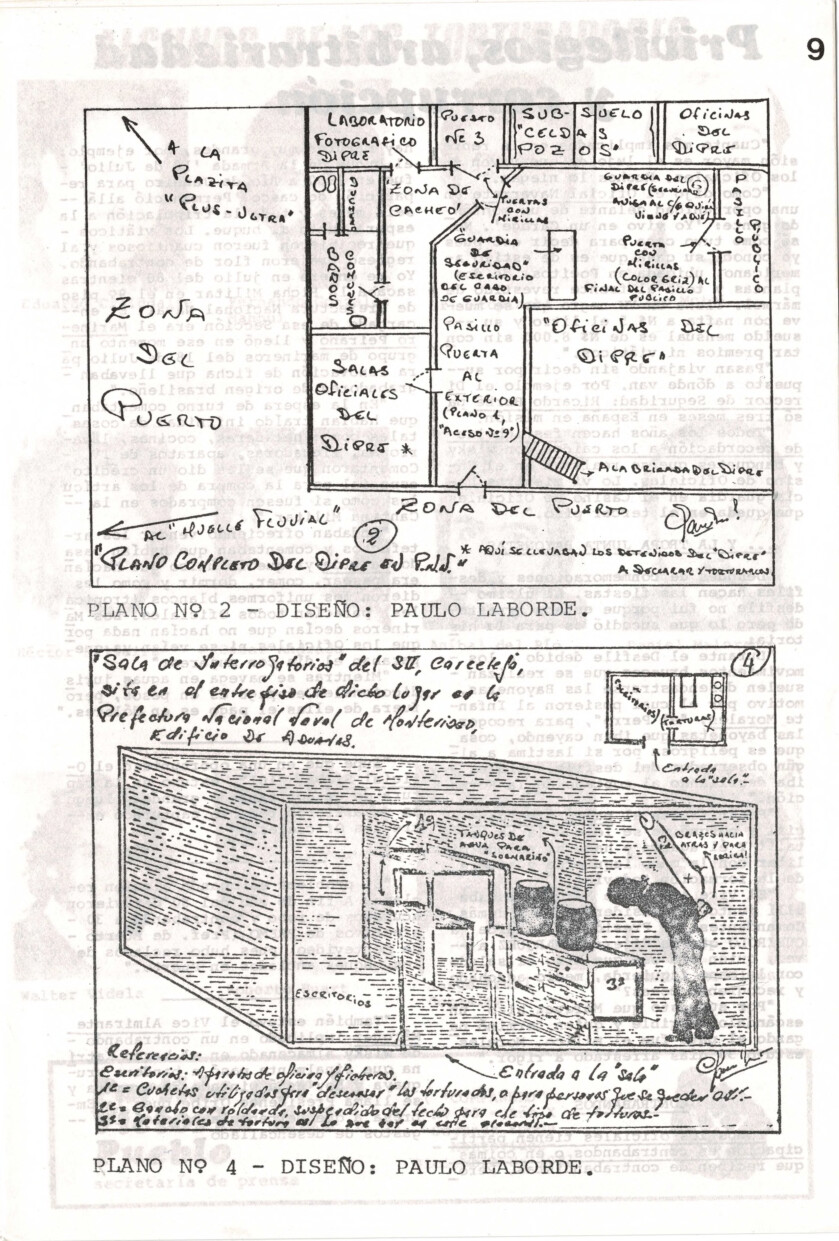 9
A LA
PLAZITA
"PLUS-ULTRA"
LABORATORIO
FOTOGRAFICO
DIPRE
PUESTO
Nº 3
SUB-SUELO
"CELDAS
POZOS"
OFICINAS
DEL
DIPRE
"ZONA DE
CACHEO"
PUERTAS
CON
MIRILLAS
GUARDIA DEL
DIPRE
PASILLO
PUBLICO
BAÑOS
COMUNES
"GUARDIA
DE
SEGURIDAD"
(ESCRITORIO
DEL CABO
DE GUARDIA)
PUERTA
CON
MIRILLAS
(COLOR GRIZ) AL
FINAL DEL PASILLO
PUBLICO
ZONA
DEL
PUERTO
SALAS
OFICIALES
DEL
DIPRE *
PASILLO
PUERTA
AL
EXTERIOR
(PLANO 1,
"ACESO Nº9")
"OFICINAS DEL
DIPRE"
A LA BRIGADA DEL DIPRE
ZONA DEL PUERTO
AL "MUELLE FLUVIAL"
2
"PLANO COMPLETO DEL DIPRE EN P.N.N."
* AQUÍ SE LLEVABAN LOS DETENIDOS DEL "DIPRE"
A DECLARAR Y TORTURARLOS.
PLANO Nº 2 - DISEÑO: PAULO LABORDE.
"Sala de Interrogatorios" del SII, Carcelejo,
sito en el entrepiso de dicho lugar en la
Prefectura Nacional Naval de Montevideo,
Edificio De Aduanas.
4
ESCRITORIOS
TORTURAS
Entrada
a la "sala".-
1º
TANQUES DE
AGUA PARA
"SUBMARINO"
2º
BRAZOS HACIA
ATRAS Y PARA
3º
ESCRITORIOS
Referencias:
Entrada a la "sala"
Escritorios: Aparatos de oficina y ficheros.
1º= Cuchetas utilizadas para "descansar" los torturados, o para personas que se queden allí.-
2º= Gancho con roldana, suspendido del techo para ese tipo de torturas.-
3º= Materiales de tortura
PLANO Nº 4 - DISEÑO: PAULO LABORDE.